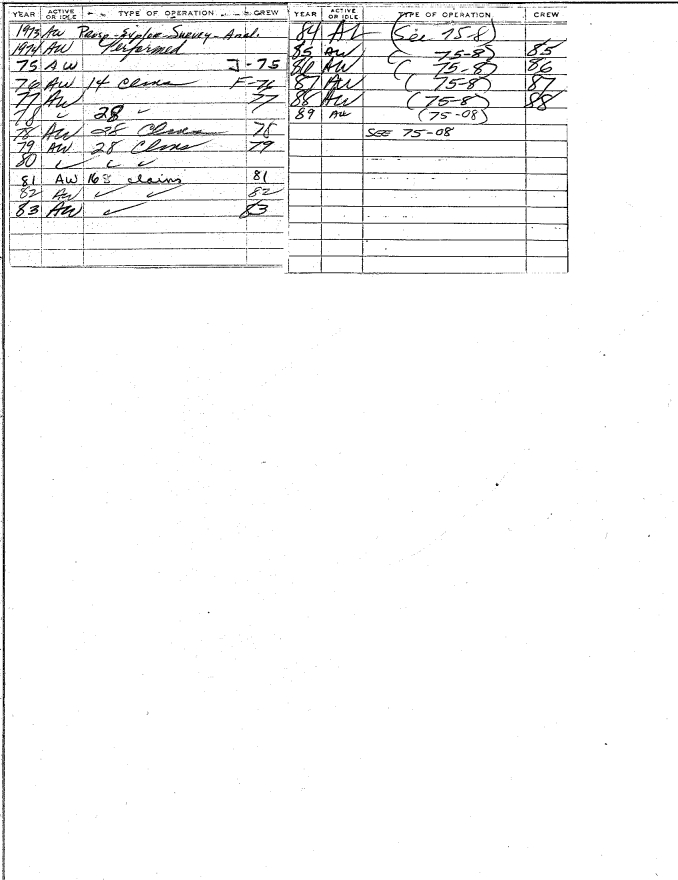 YEAR ACTIVE OR IDLE TYPE OF OPERATION CREW
1973 AW Prosp - Explor - Survey - Anal.
1974 AW Performed
75 AW J-75
76 AW 14 Clms F-76
77 AW 77
78 ✓ 28 ✓
78 AW 28 Clms 78
79 AW 28 Clms 79
80 ✓ ✓ ✓
81 AW 168 claims 81
82 AW ✓ ✓ 82
83 AW ✓ 83
YEAR ACTIVE OR IDLE TYPE OF OPERATION CREW
84 (See 75-8)
85 AW ( 75-8) 85
86 AW ( 75-8) 86
87 AW ( 75-8) 87
88 AW (75-8) 88
89 AW (75-08)
SEE 75-08